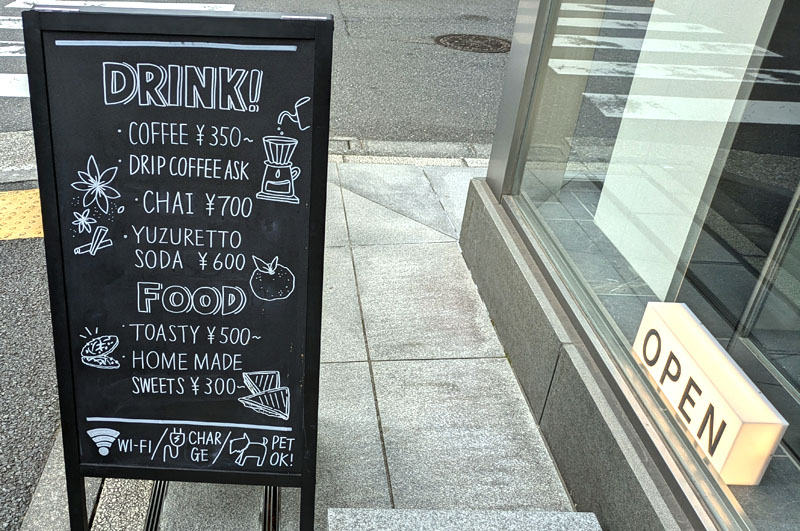 DRINK!
・COFFEE ¥350~
・DRIP COFFEE ASK
・CHAI ¥700
・YUZURETTO
SODA ¥600
FOOD
・TOASTY ¥500~
・HOME MADE
SWEETS ¥300~
WI-FI/CHAR
GE/PET
OK!
OPEN